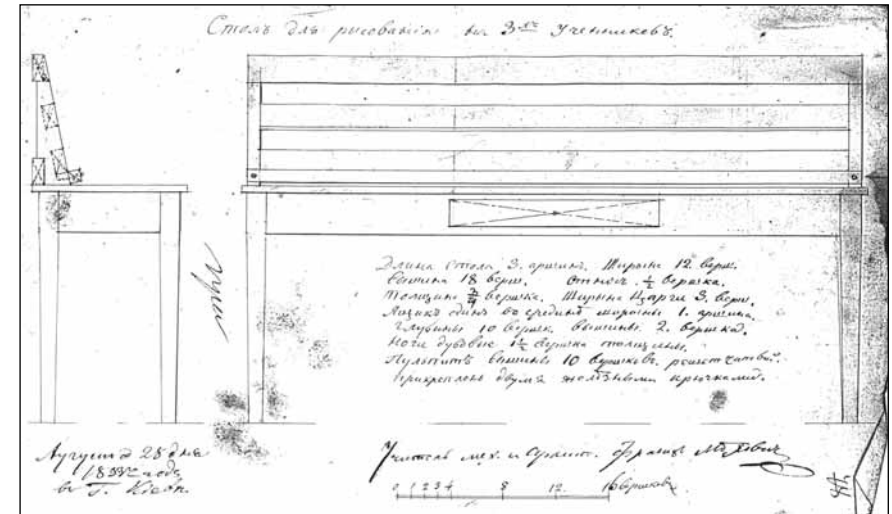 Столъ для рисованія на 3хъ Учениковъ.
Длина стола 3. аршина. Ширина 12. верш.
вышина 18 верш. 
толщина 3/4 вершка. Ширина Царги 3. верш.
Ящикъ одинъ въ срединѣ ширины 1. аршина.
глубины 10 вершк. вышины 2. вершка.
Ноги дубовые 1½ вершка толщины.
Пульпитъ вышины 10 вершковъ. решетчатой.
прикрепленъ двумя желѣзными крючками.
Августа 28 дня
года
в Г. Кіевъ.
Учитель мех. и Францъ
0 1 2 3 4 8 12. 16 вершковъ